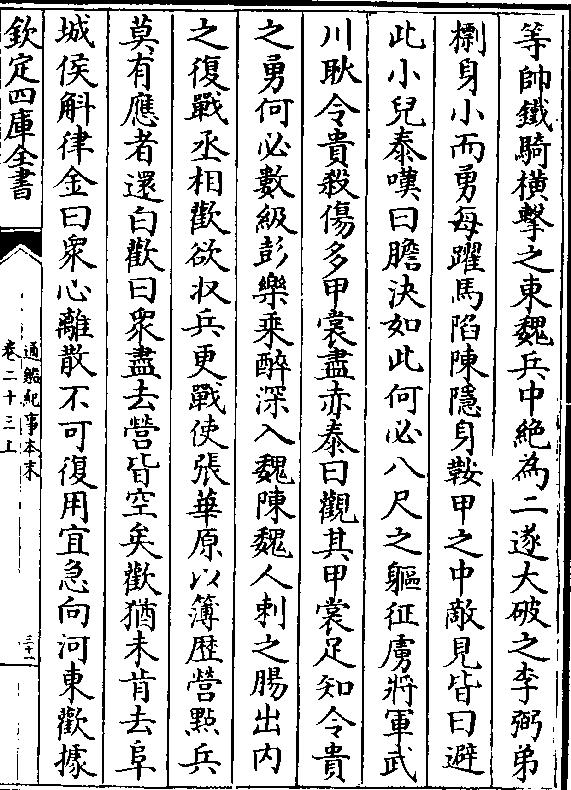 等帥鐵騎橫擊之東魏兵中絶為二遂大破之李弼弟
檦身小而勇每躍馬陷陳隱身鞍甲之中敵見皆曰避
此小兒泰嘆曰膽決如此何必八尺之軀征虜將軍武
川耿令貴殺傷多甲裳盡赤泰曰觀其甲裳足知令貴
之勇何必數級彭樂乘醉深入魏陳魏人刺之腸出内
之復戰丞相歡欲收兵更戰使張華原以簿歴營㸃兵
莫有應者還白歡曰衆盡去營皆空矣歡猶未肯去阜
城侯斛律金曰衆心離散不可復用宜急向河東歡據
欽定四庫全書
通鑑紀事本末
卷二十三上
三十一